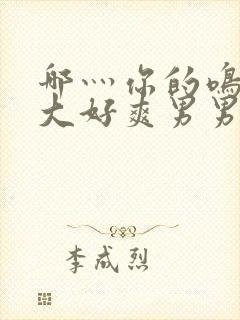 那灬你的鳴
大好爽男男
李成烈